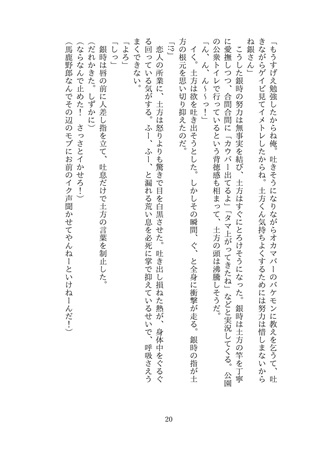 「もうすげえ勉強したからね俺。吐きそうになりながらオカマバーのバケモンに教えを乞うて、吐
きながらゲイビ見てイメトレしたからね。土方くん気持ちよくするためには努力は惜しまないから
ね銀さん」
　こうした銀時の努力は無事実を結び、土方はすぐにとろけそうになった。銀時は土方の竿を丁寧
に愛撫しつつ、合間合間に「カウパー出てるよ」「タマ上がってきたね」などと実況してくる。公園
の公衆トイレで行っているという背徳感も相まって、土方の頭は沸騰しそうだ。
「ん、ん、ん〜〜っ！」
　イく。土方は欲を吐き出そうとした。しかしその瞬間、ぐ、と全身に衝撃が走る。銀時の指が土
方の根元を思い切り抑えたのだ。
「!?」
　恋人の所業に、土方は怒りよりも驚きで目を白黒させた。吐き出し損ねた熱が、身体中をぐるぐ
る回っている気がする。ふー、ふー、と漏れる荒い息を必死に掌で抑えているせいで、呼吸さえう
まくできない。
「よろ」
「しっ」
　銀時は唇の前に人差し指を立て、吐息だけで土方の言葉を制止した。
（だれかきた。しずかに）
（ならなんで止めた！　さっさとイかせろ！）
（馬鹿野郎なんでその辺のモブにお前のイク声聞かせてやんねーといけねーんだ！）
20